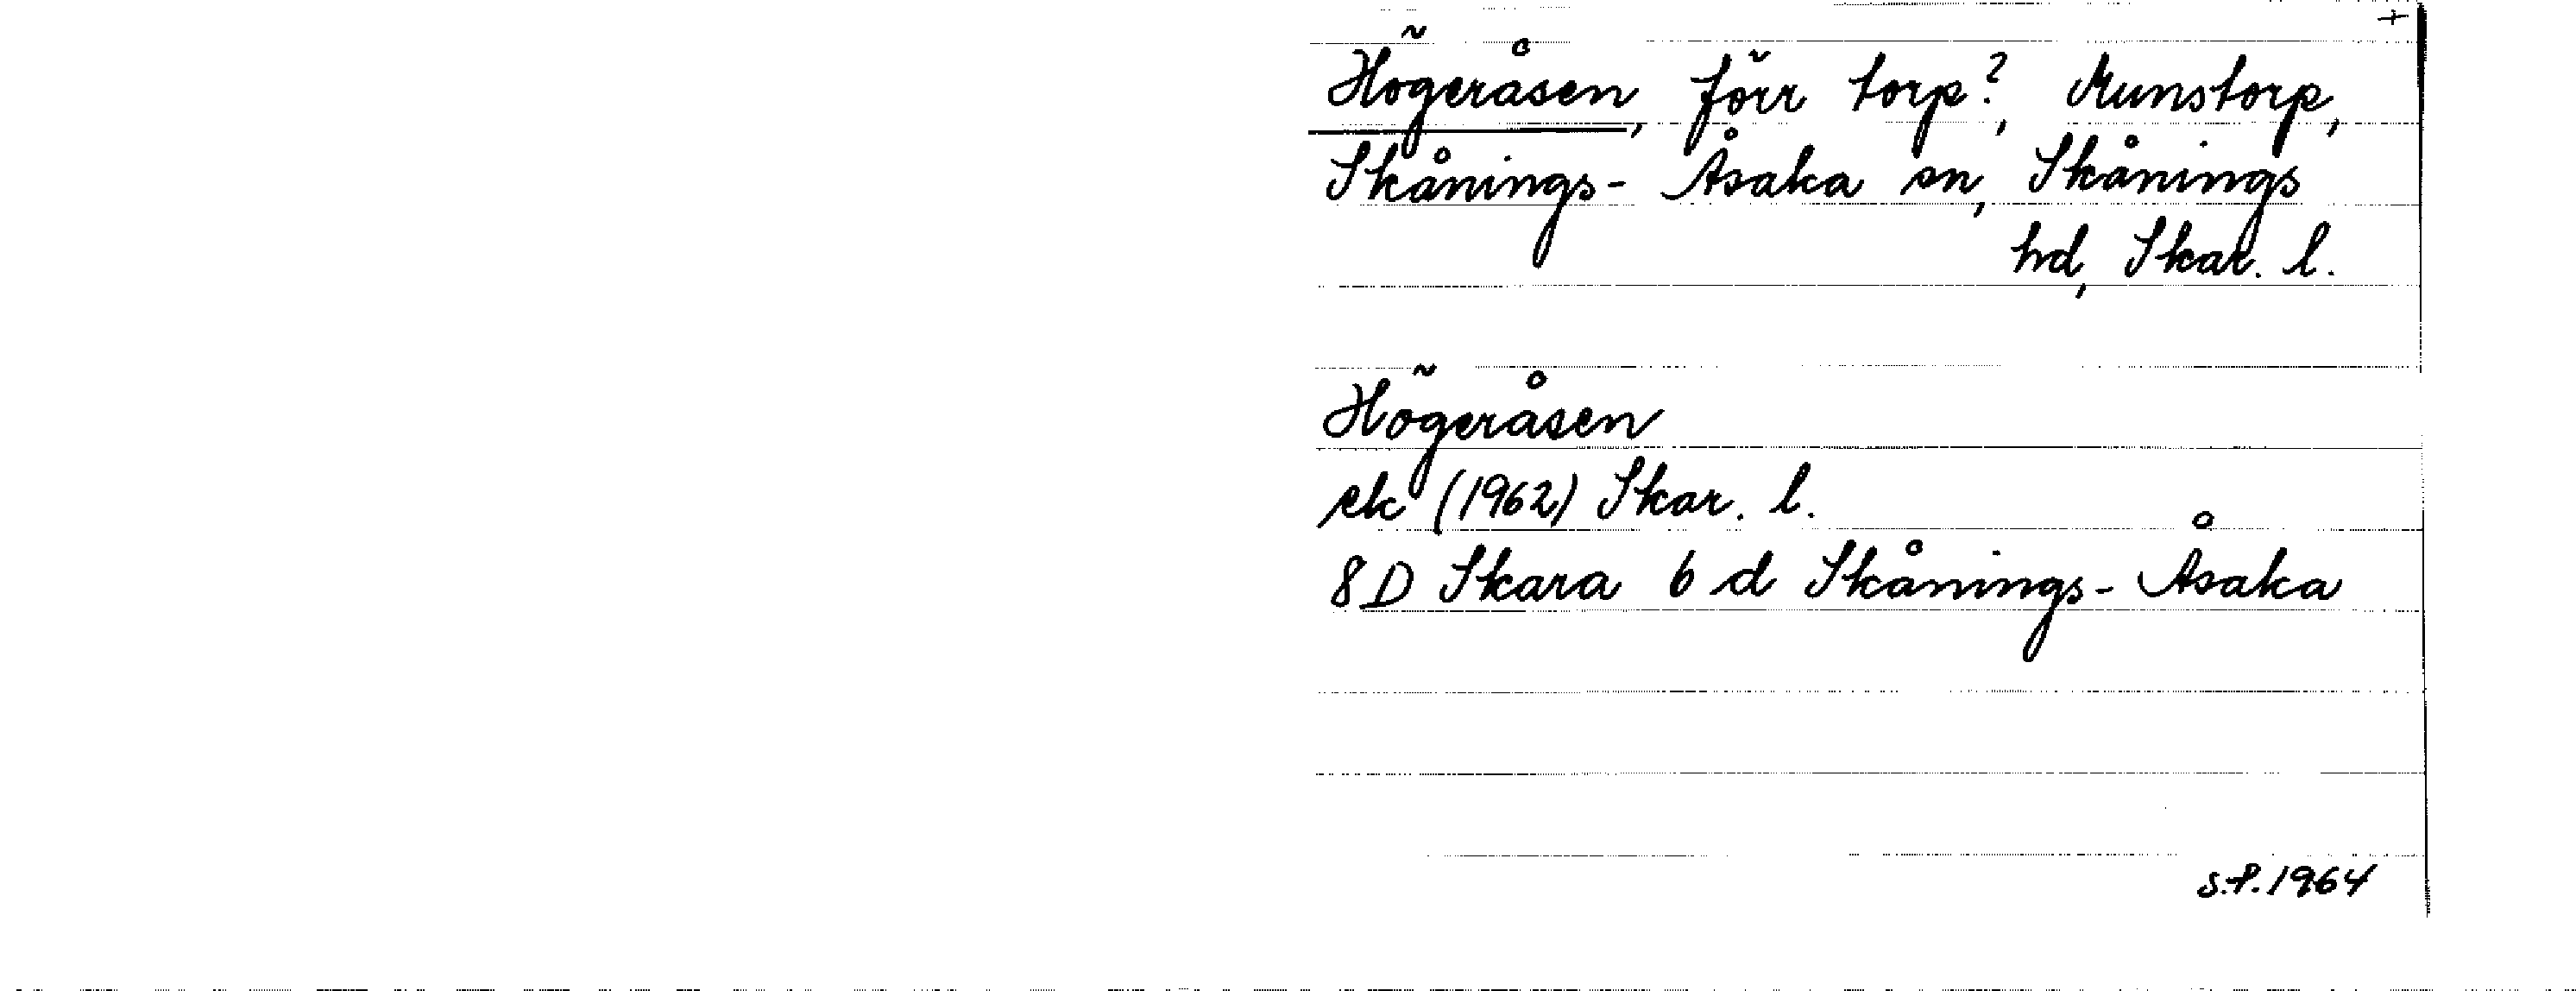 +
Högeråsen, förr torp?, Munstorp,
Skånings-Åsaka sn, Skånings
hd, Skar. l.
Högeråsen
ek (1962) Skar. l.
8D Skara 6 d Skånings-Åsaka
S.P. 1964